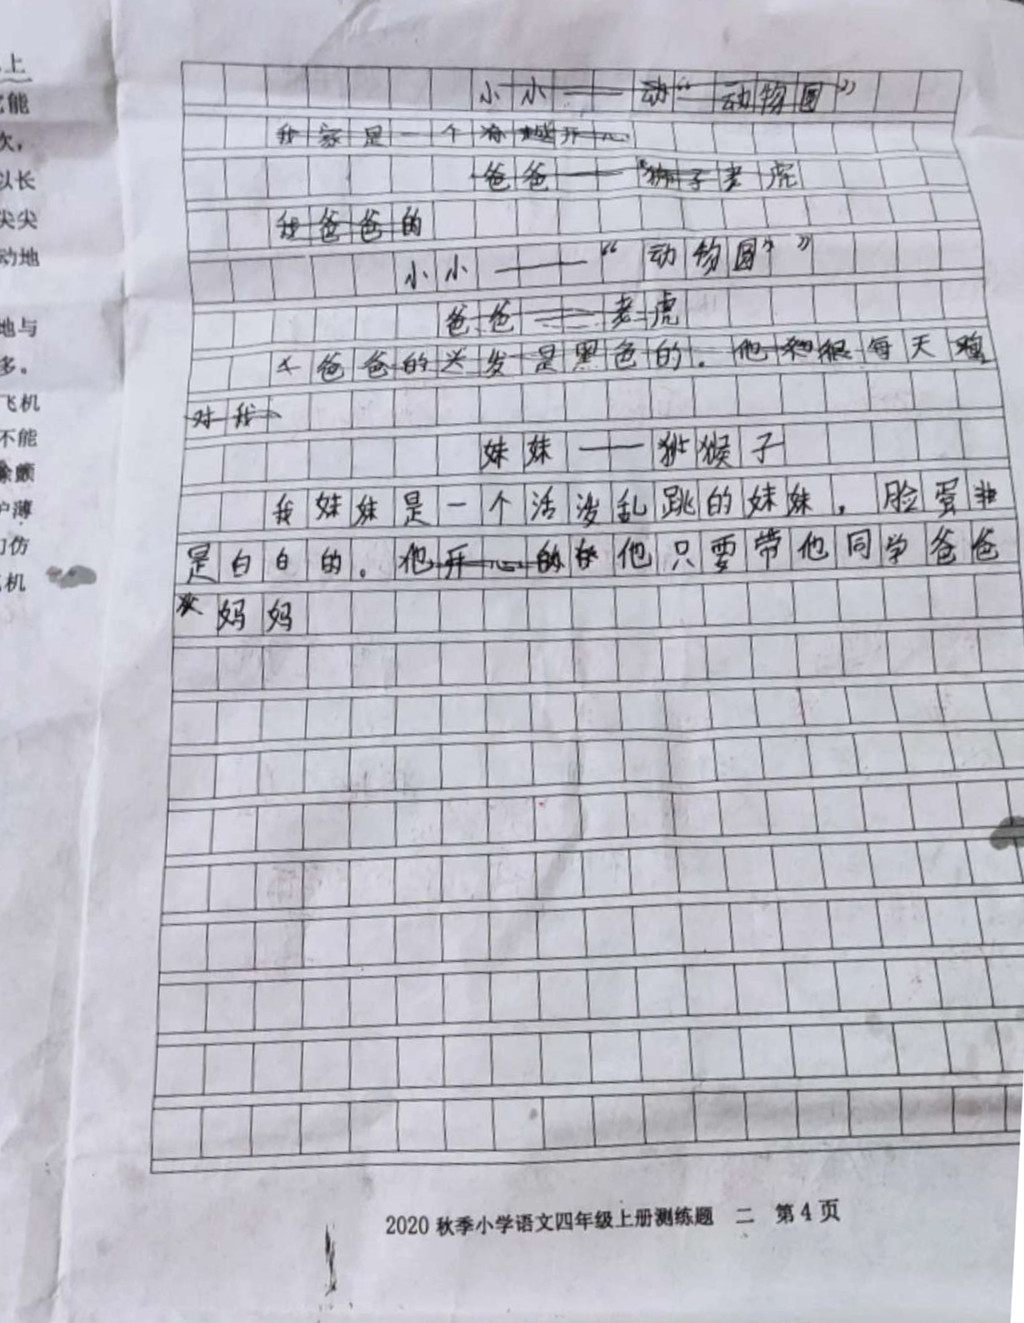 上
能
次，
以长
尖尖
动地
地与
多。
飞机
不能
像颜
护薄
们仿
机
小小——动“动物园”
我家是一个
爸爸——狮子老虎
我爸爸的
小小——“动物园”
爸爸——老虎
爸爸的头发是黑色的。他和很每天
对我
妹妹——猴子
我妹妹是一个活泼乱跳的妹妹，脸蛋
是白白的。他开心的 他只要带他同学爸爸
妈妈
2020秋季小学语文四年级上册测练题 二 第4页